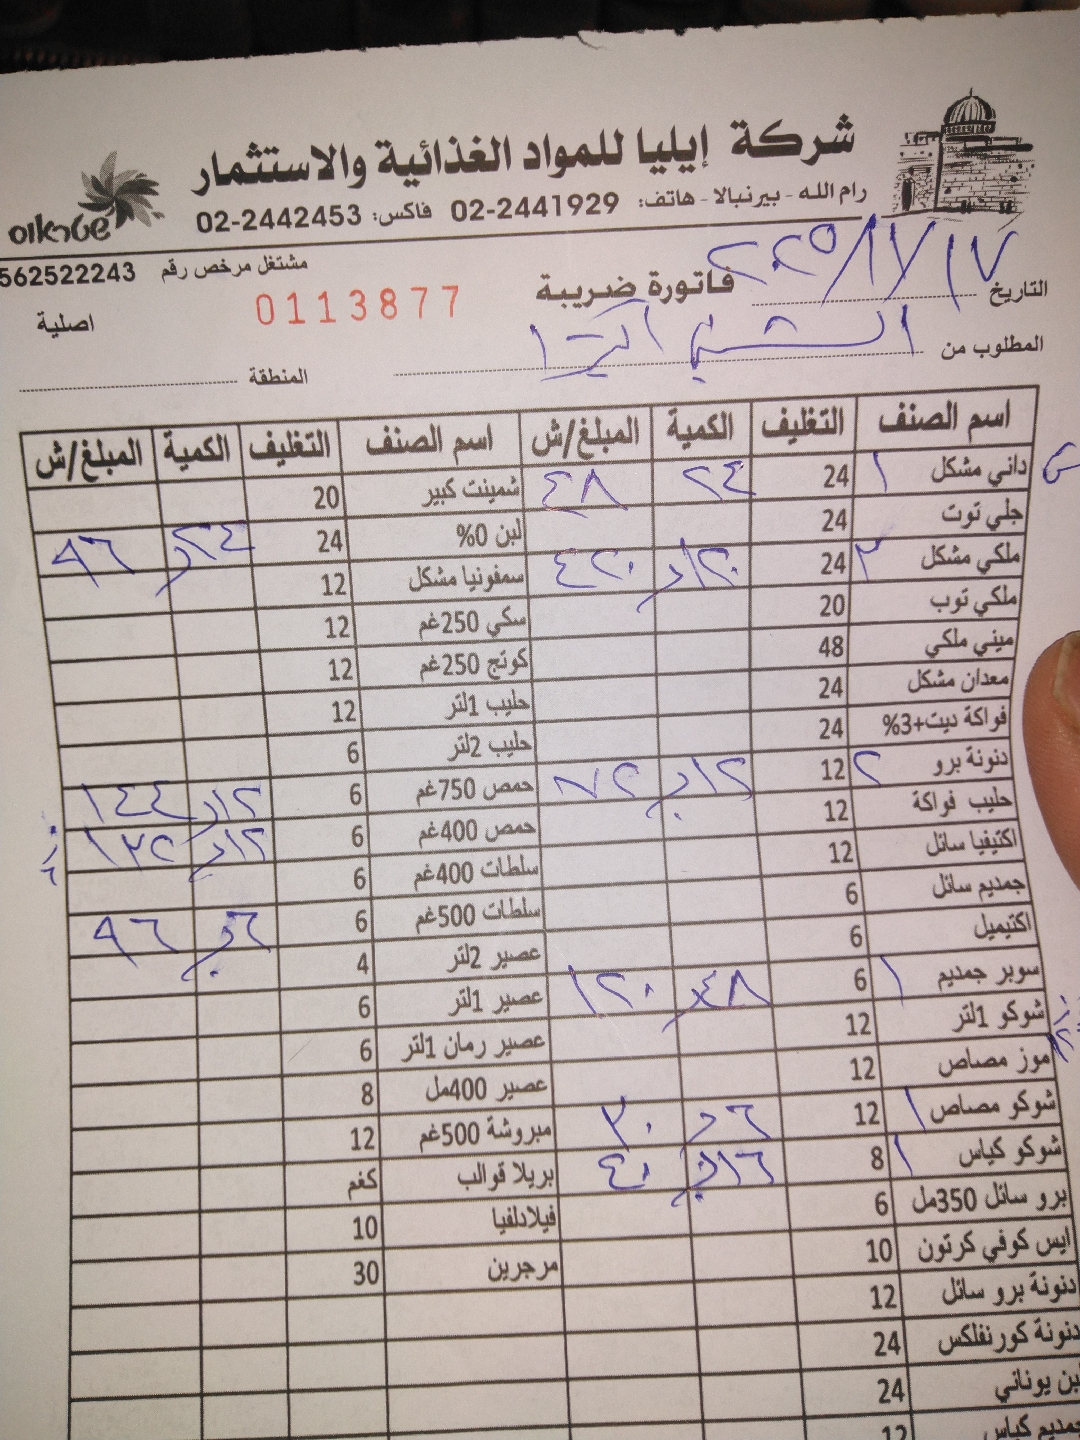 شركة إيليا للمواد الغذائية والاستثمار
رام الله - بيرنبالا - هاتف: 02-2441929 فاكس: 02-2442453
שטראוס
مشتغل مرخص رقم 562522243
التاريخ ٢٠٢٥/١٧/١٧
فاتورة ضريبة
0113877
اصلية
المطلوب من
المنطقة
اسم الصنف التغليف الكمية المبلغ/ش اسم الصنف التغليف الكمية المبلغ/ش
داني مشكل ١ 24 ٢٤ ٤٨ شمينت كبير 20
جلي توت 24 لبن 0% 24 ٢٤ ٩٦
ملكي مشكل ٣ 24 ١٢٠ ٤٢٠ سمفونيا مشكل 12
ملكي توب 20 سكي 250غم 12
ميني ملكي 48 كوتج 250غم 12
معدان مشكل 24 حليب 1لتر 12
فواكة ديت+3% 24 حليب 2لتر 6
دنونة برو ٢ 12 ١٢ ٧٢ حمص 750غم 6 ١٢ ١٤٤
حليب فواكة 12 حمص 400غم 6 ١٢ ١٣٢
اكتيفيا سائل 12 سلطات 400غم 6
جمديم سائل 6 سلطات 500غم 6 ٦ ٩٦
اكتيميل 6 عصير 2لتر 4
سوبر جمديم ١ 6 ٤٨ ١٢٠ عصير 1لتر 6
شوكو 1لتر 12 عصير رمان 1لتر 6
موز مصاص 12 عصير 400مل 8
شوكو مصاص ١ 12 ٦ ٣٠ مبروشة 500غم 12
شوكو كياس ١ 8 ١٦ ٤٠ بريلا قوالب كغم
برو سائل 350مل 6 فيلادلفيا 10
ايس كوفي كرتون 10 مرجرين 30
دنونة برو سائل 12
دنونة كورنفلكس 24
لبن يوناني 24
جمديم كياس 12